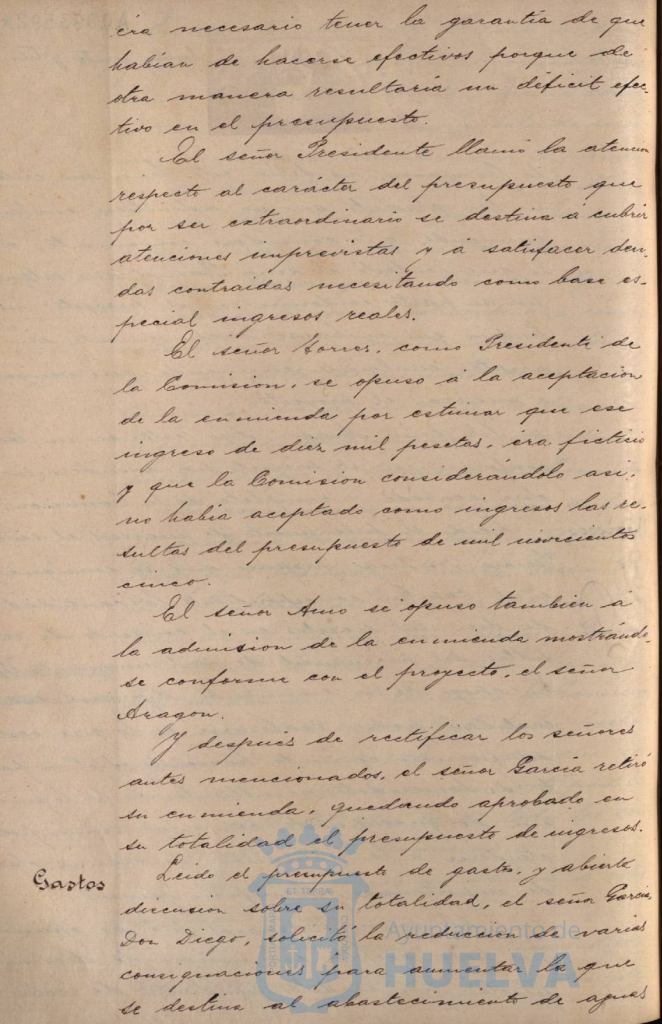 éra necesario tener la garantía de que
habían de hacerse efectivos porque de
otra manera resultaría un déficit efec-
tivo en el presupuesto.
El señor Presidente llamó la atencion
respecto al carácter del presupuesto que
por ser extraordinario se destina á cubrir
atenciones imprevistas y á satisfacer deu-
das contraidas necesitando como base es-
pecial ingresos reales.
El señor Torres, como Presidente de
la Comision, se opuso á la aceptacion
de la enmienda por estimar que ese
ingreso de diez mil pesetas, éra fictisio
y que la Comision considerándolo asi,
no había aceptado como ingresos las re-
sultas del presupuesto de mil novecientos
cinco.
El señor Amo se opuso tambien á
la admision de la enmienda mostrándo-
se conforme con el proyecto, el señor
Aragon.
Y después de rectificar los señores
antes mencionados, el señor García retiró
su enmienda, quedando aprobado en
su totalidad el presupuesto de ingresos.
Gastos
Leido el presupuesto de gastos, y abierta
discusion sobre su totalidad, el señor García,
Don Diego, solicitó la reduccion de varias
consignaciones para aumentar la que
se destina al abastecimiento de aguas
Ayuntamiento de
HUELVA